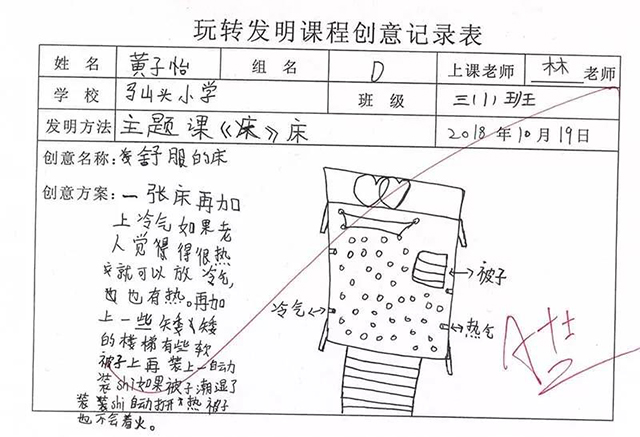 玩转发明课程创意记录表
姓 名 黄子怡 组 名 D 上课老师 林 老师
学 校 马山头小学 班 级 三(1)班
发明方法 主题课《床》床 2018年10月19日
创意名称: 舒服的床
创意方案: 一张床再加
上冷气如果老
人觉得得很热
就可以放冷气,
也有热。再加
上一些矮矮
的楼梯有些软
被子上再装上一自动
装shi如果被子潮湿了
装装shi自动打开热被子
也不会着火。
被子
冷气
热气
A++
2